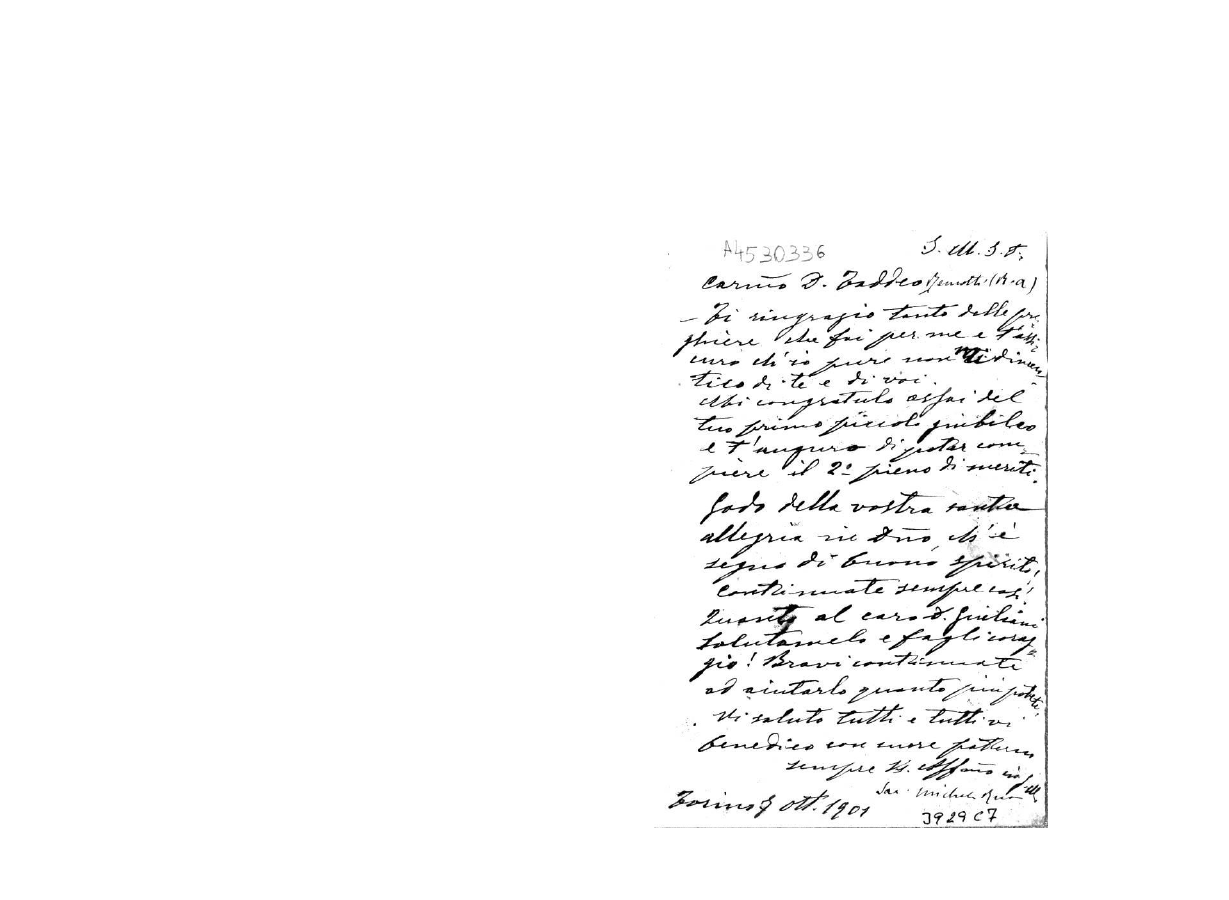 A4530336
J. M. J. T.
Carmo D. Taddeo Remotti (R.a)
– Ti ringrazio tanto delle pre
ghiere che fai per me e t'assi
curo ch'io pure non mi dimen
tico di te e di voi.
Mi congratulo assai del
tuo primo piccolo giubileo
e t'auguro di poter com
piere il 2º pieno di meriti.
Godo della vostra santa
allegria in Dno, ch'è
segno di buono spirito,
continuate sempre così!
Quanto al caro D. Giuliani
salutamelo e fagli corag
gio! Bravi continuate
ad aiutarlo quanto più potete.
Vi saluto tutti e tutti vi
benedico con cuore paterno
sempre V. Affmo in
Sac. Michele Rua
Torino 9 Ott. 1901
3929 C7